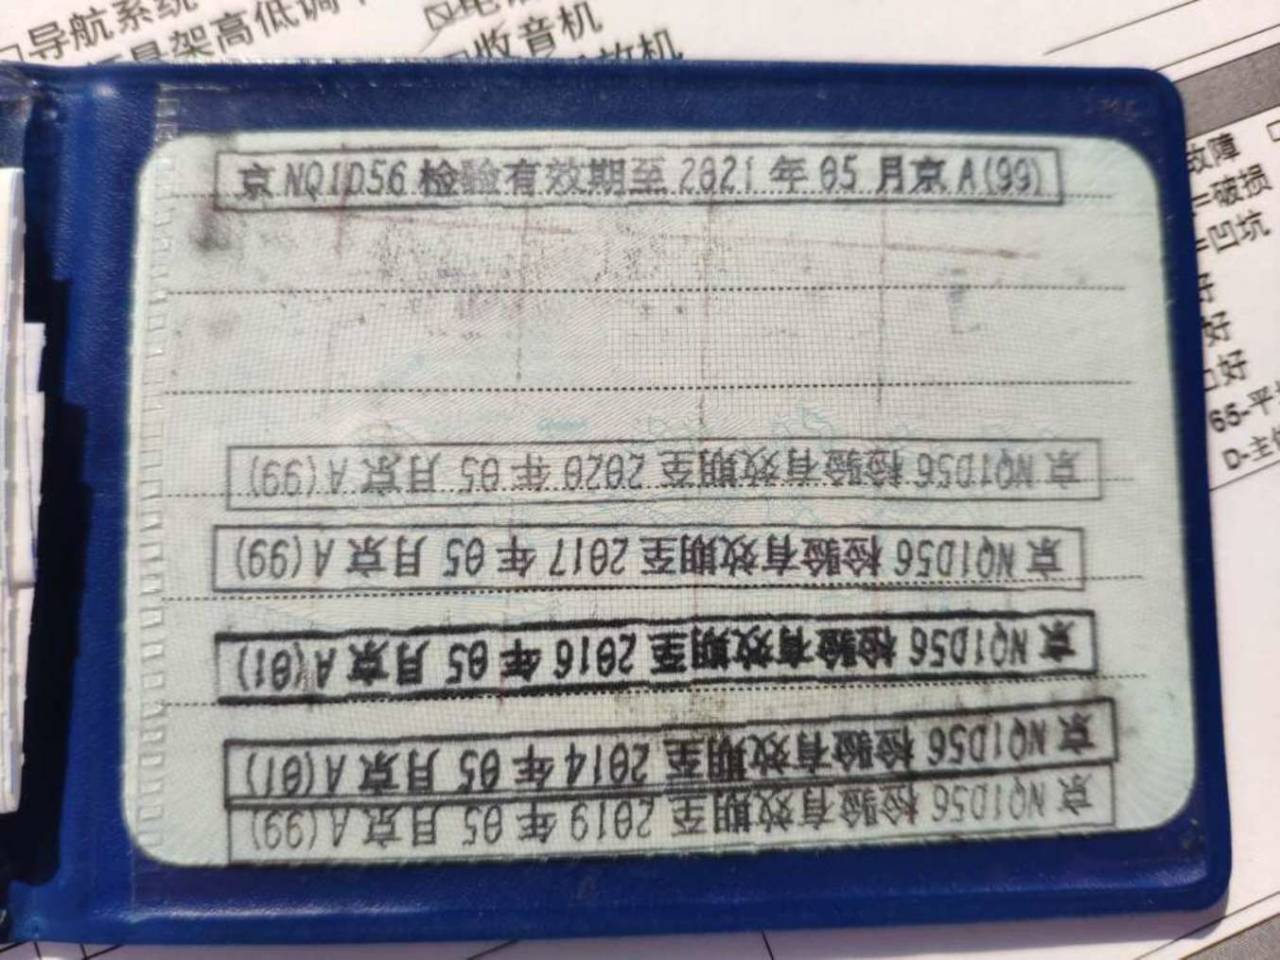 导航系统
架高低调
收音机
放机
京 NQ1D56 检验有效期至 2021 年 05 月京 A(99)
故障
=破损
=凹坑
好
好
好
65-平
D-主
京 NQ1D56 检验有效期至 2020 年 05 月京 A(99)
京 NQ1D56 检验有效期至 2017 年 05 月京 A(99)
京 NQ1D56 检验有效期至 2016 年 05 月京 A(01)
京 NQ1D56 检验有效期至 2014 年 05 月京 A(01)
京 NQ1D56 检验有效期至 2019 年 05 月京 A(99)